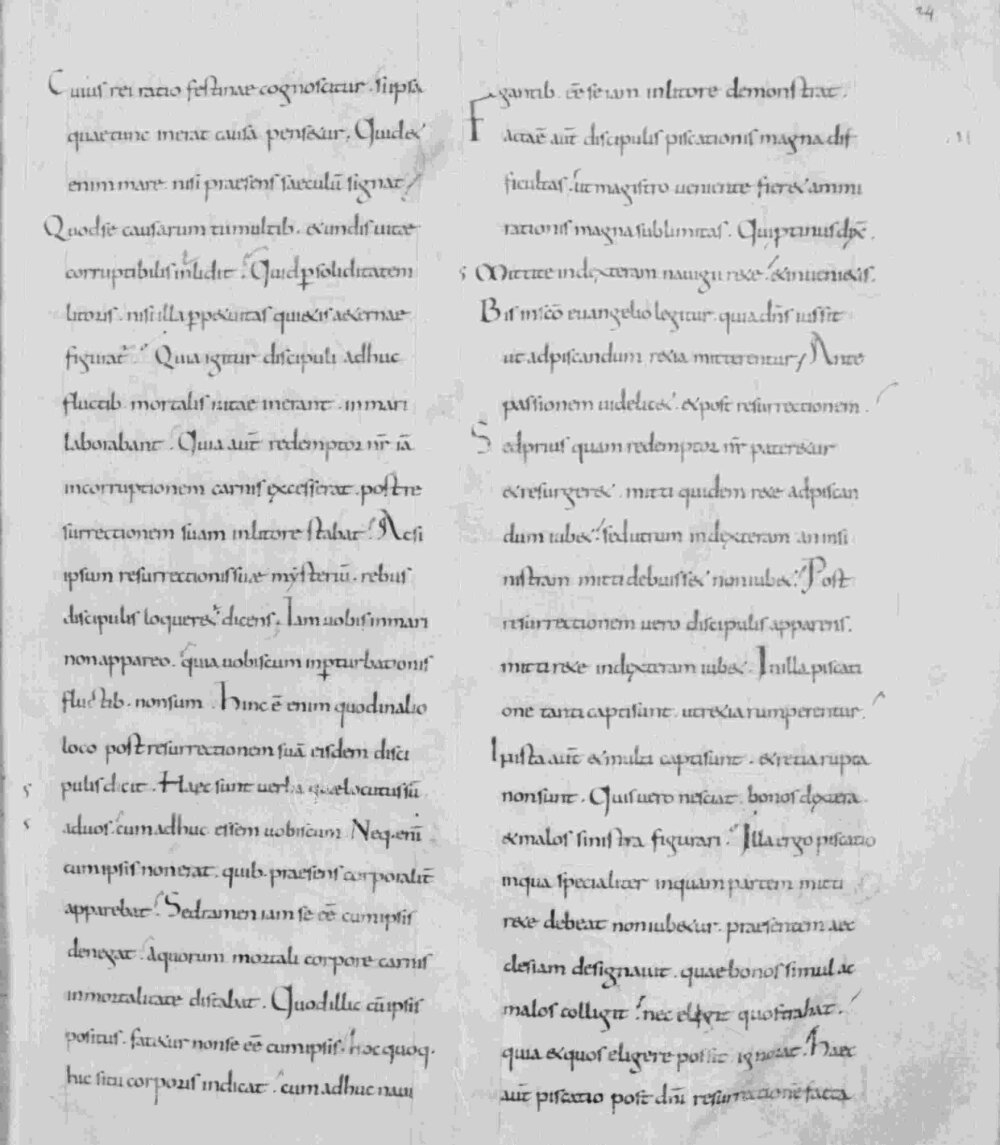 24
Cuius rei ratio festinae cognoscitur. si ipsa
quae tunc inerat causa pensetur. Quid &
enim mare. nisi praesens saeculū signat?
Quod se causarum tumultib. & undis uitae
corruptibilis inlidit. Quid ꝑ soliditatem
litoris. nisi illa ꝑp&uitas qui&is a&ernae
figurat̄. Quia igitur discipuli adhuc
fluctib. mortalis uitae inerant. in mari
laborabant. Quia aut̄ redemptor nr̄ iā
incorruptionem carnis excesserat. post re
surrectionem suam in litore stabat. Ac si
ipsum resurrectionis suae mysteriū. rebus
discipulis loquer&ur dicens. Iam uobis in mari
non appareo. quia uobiscum in ꝑturbationis
fluctib. non sum. Hinc ē enim quod in alio
loco post resurrectionem suā eisdem disci
pulis dicit. Haec sunt uerba quae locutus sū
ad uos. cum adhuc essem uobiscum. Neq. enī
cum ipsis non erat. quib. praesens corporalit̄
apparebat. Sed tamen iam se eē cum ipsis
denegat. a quorum mortali corpore carnis
inmortalitate distabat. Quod illic cū ipsis
positus. fat&ur non se eē cum ipsis. hoc quoq.
hic situ corporis indicat. cum adhuc naui
gantib. eē se iam in litore demonstrat.
Facta ē aut̄ discipulis piscationis magna dif
ficultas. ut magistro ueniente fier& ammi
rationis magna sublimitas. Qui ptinus dix̄.
Mittite in dexteram nauigii rete. & inueni&is.
Bis in scō euangelio legitur. quia dn̄s iussit
ut ad piscandum r&ia mitterentur. Ante
passionem uidelic&. & post resurrectionem.
Sed prius quam redemptor nr̄ pater&ur
& resurger&. mitti quidem rete ad piscan
dum iub&. sed utrum in dexteram an in si
nistram mitti debuiss& non iub&. Post
resurrectionem uero discipulis apparens.
mitti rete in dexteram iub&. In illa piscati
one tanti capti sunt. ut r&ia rumperentur.
In ista aut̄ & multi capti sunt. & retia rupta
non sunt. Quis uero nesciat. bonos dextera.
& malos sinistra figurari. Illa ergo piscatio
in qua specialiter in quam partem mitti
rete debeat non iub&ur. praesentem aec
clesiam designauit. quae bonos simul ac
malos colligit. nec elegit quos trahat.
quia & quos eligere possit ignorat. Haec
aut̄ piscatio post dn̄i resurrectionē facta